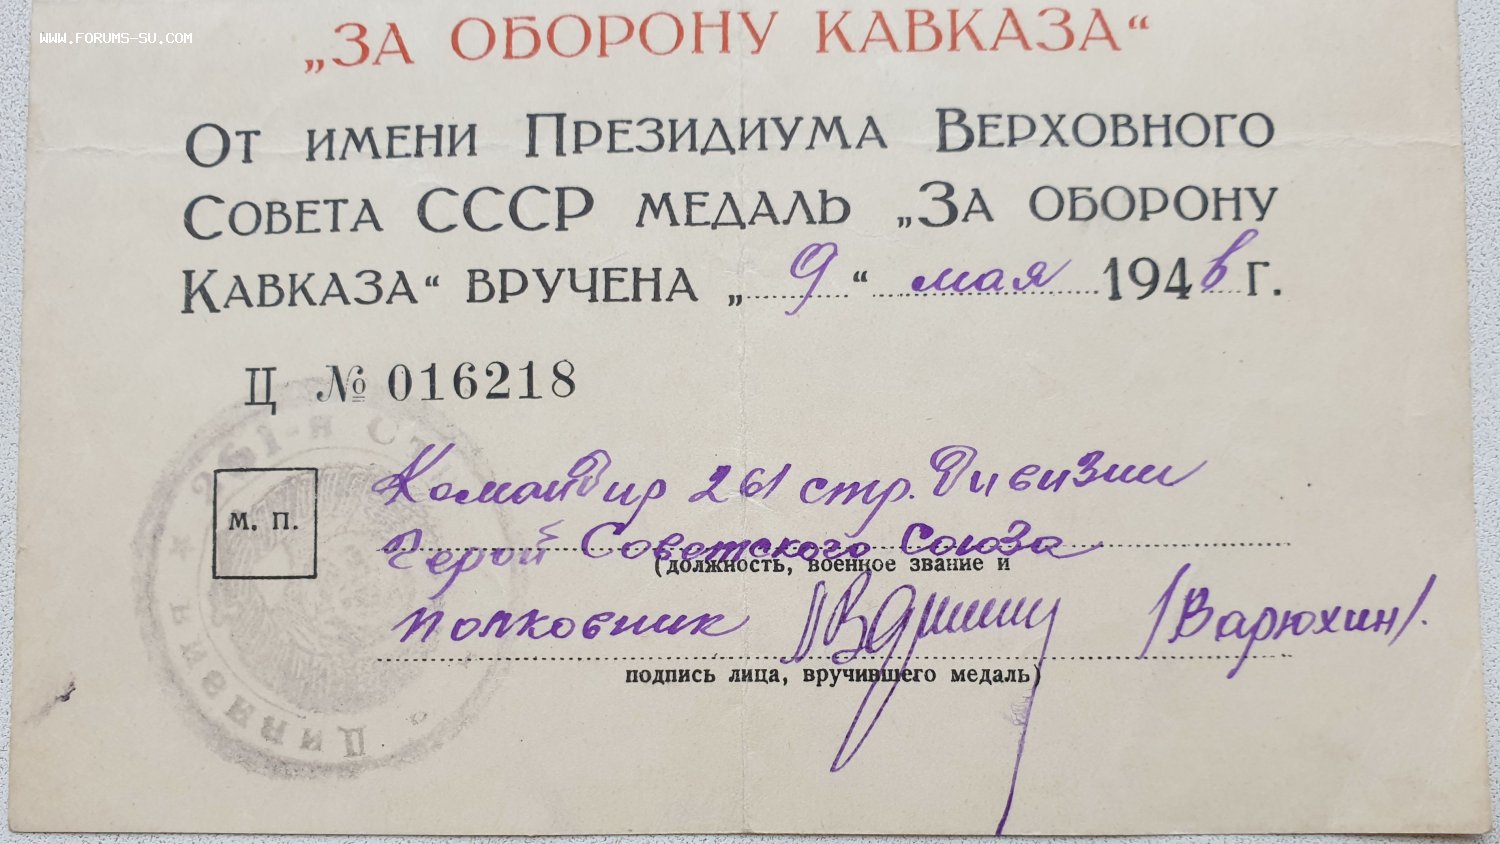 WWW.FORUMS-SU.COM
„ЗА ОБОРОНУ КАВКАЗА“
От имени Президиума Верховного
Совета СССР медаль „За оборону
Кавказа“ вручена „9“ мая 1946 г.
Ц № 016218
261-я СТР
ДИВИЗИЯ
м. п.
Командир 261 стр. Дивизии
Герой Советского Союза
(должность, военное звание и
полковник (Варюхин).
подпись лица, вручившего медаль)